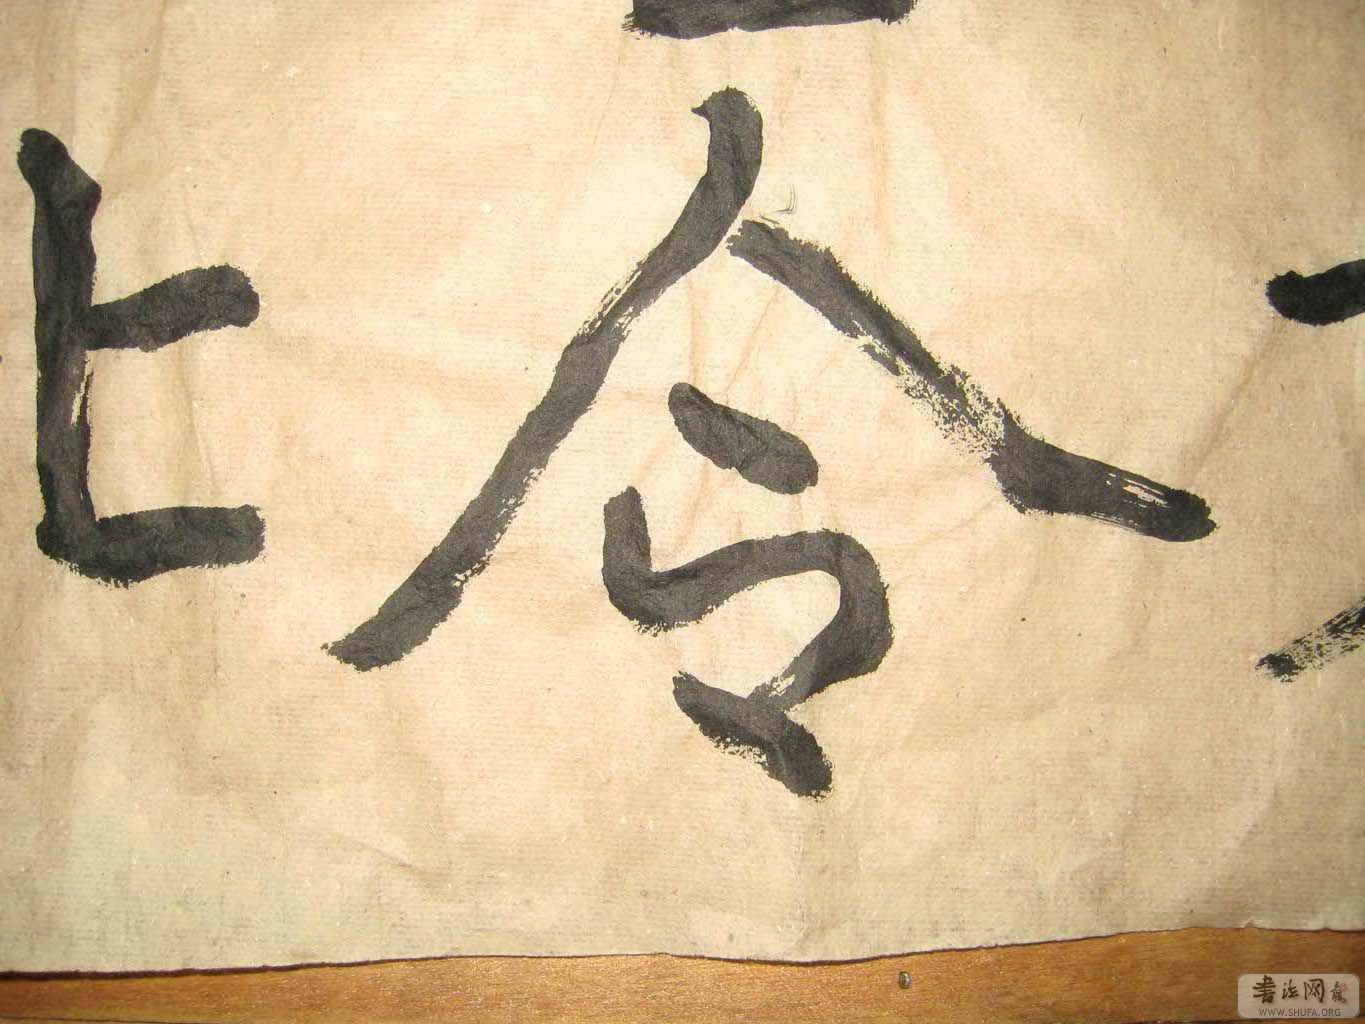 上
令
书法网
WWW.SHUFA.ORG